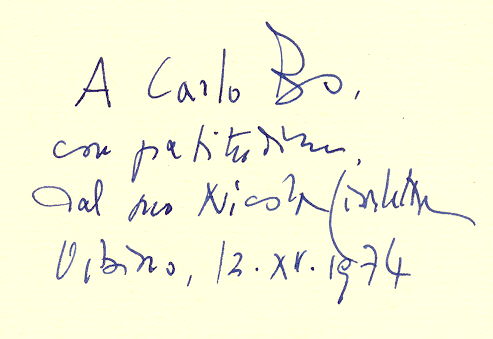 A Carlo Bo,
con gratitudine,
dal suo Nicola
Urbino, 12.XI.1974